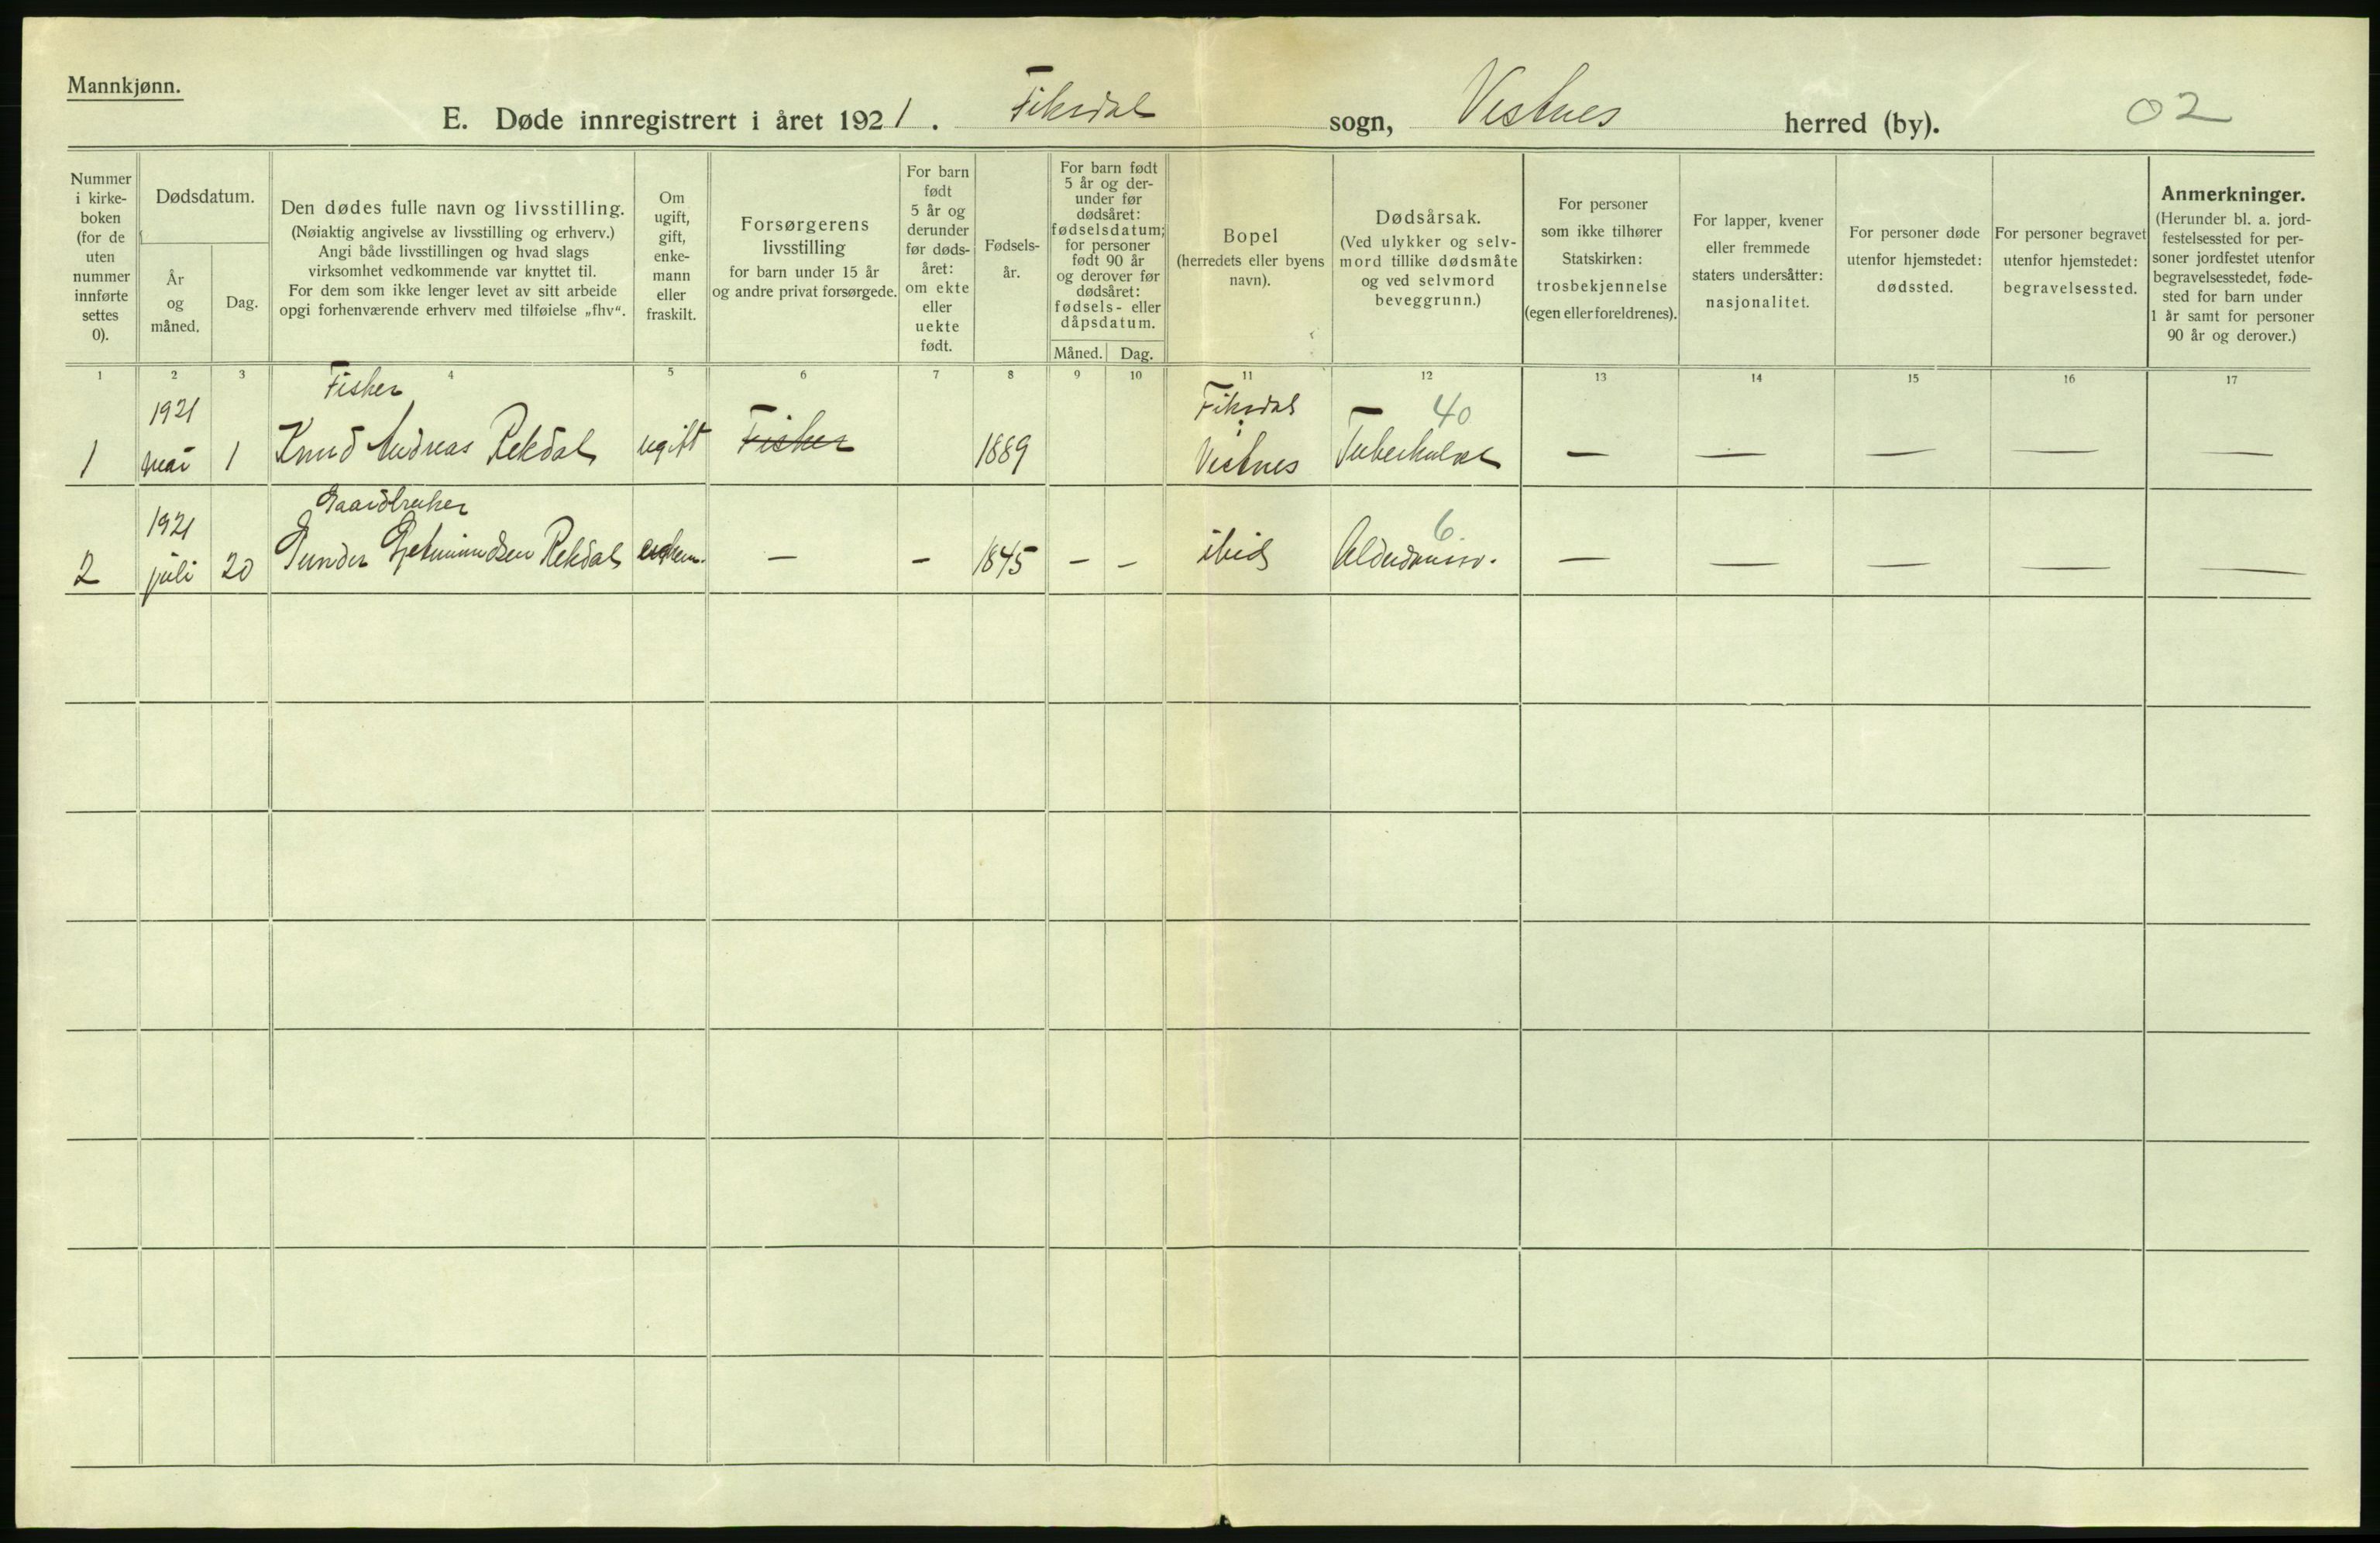 Mannkjønn.
E. Døde innregistrert i året 1921. Fiksdal sogn, Vestnes herred (by). 02
Nummer
i kirke-
boken
(for de
uten
nummer
innførte
settes
0).
Dødsdatum.
År
og
måned.
Dag.
Den dødes fulle navn og livsstilling.
(Nøiaktig angivelse av livsstilling og erhverv.)
Angi både livsstillingen og hvad slags
virksomhet vedkommende var knyttet til.
For dem som ikke lenger levet av sitt arbeide
opgi forhenværende erhverv med tilføielse „fhv“.
Om
ugift,
gift,
enke-
mann
eller
fraskilt.
Forsørgerens
livsstilling
for barn under 15 år
og andre privat forsørgede.
For barn
født
5 år og
derunder
før døds-
året:
om ekte
eller
uekte
født.
Fødsels-
år.
For barn født
5 år og der-
under før
dødsåret:
fødselsdatum;
for personer
født 90 år
og derover før
dødsåret:
fødsels- eller
dåpsdatum.
Måned. Dag.
Bopel
(herredets eller byens
navn).
Dødsårsak.
(Ved ulykker og selv-
mord tillike dødsmåte
og ved selvmord
beveggrunn.)
For personer
som ikke tilhører
Statskirken:
trosbekjennelse
(egen eller foreldrenes).
For lapper, kvener
eller fremmede
staters undersåtter:
nasjonalitet.
For personer døde
utenfor hjemstedet:
dødssted.
For personer begravet
utenfor hjemstedet:
begravelsessted.
Anmerkninger.
(Herunder bl. a. jord-
festelsessted for per-
soner jordfestet utenfor
begravelsesstedet, føde-
sted for barn under
1 år samt for personer
90 år og derover.)
1 2 3 4 5 6 7 8 9 10 11 12 13 14 15 16 17
1921 Fisker Fiksdal 40
1 mai 1 Knud Andreas Rekdal ugift Fisker 1889 Vestnes Tuberkulose — — — — —
1921 Gaardbruker 6
2 juli 20 Gunder Gjetmundsen Rekdal — — 1845 — — ibid — — — — —